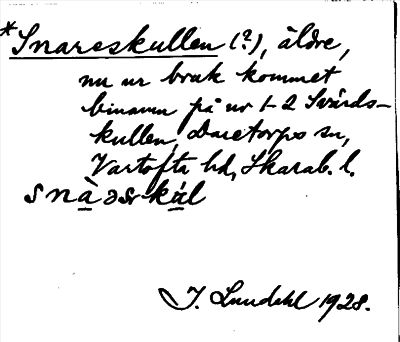 *Snareskullen (?), äldre,
nu ur bruk kommet
binamn på nr 1-2 Svärds-
kullen, Daretorps sn,
Vartofta hd, Skarab. l.
snàəsrkál
J. Lundahl 1928.